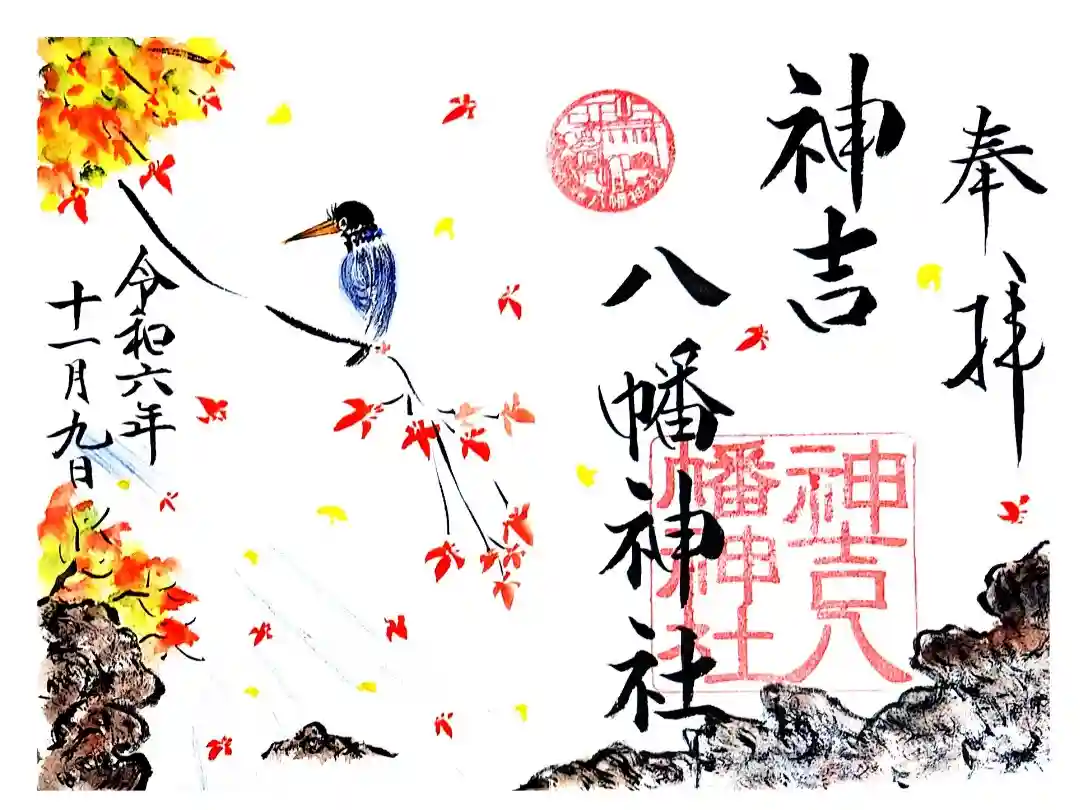 奉拝
神吉
八幡神社
八幡神社
神吉八
幡神社
令和六年
十一月九日